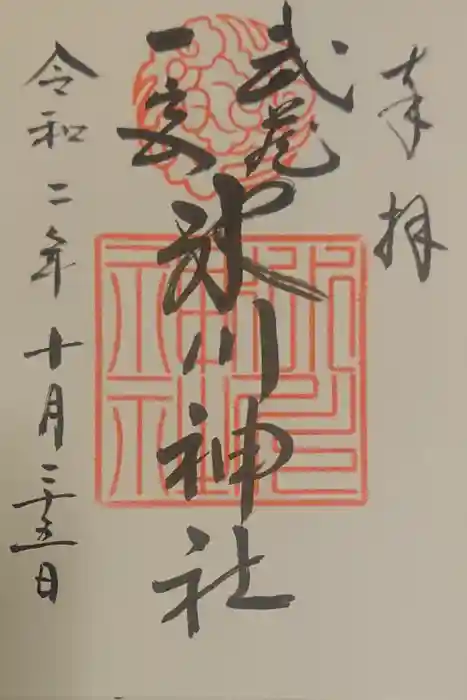 奉拝
武蔵
一宮
氷川神社
令和二年十月二十五日